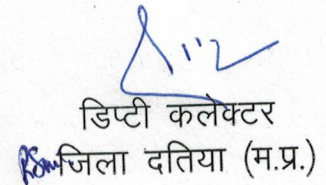 डिप्टी कलेक्टर
जिला दतिया (म.प्र.)